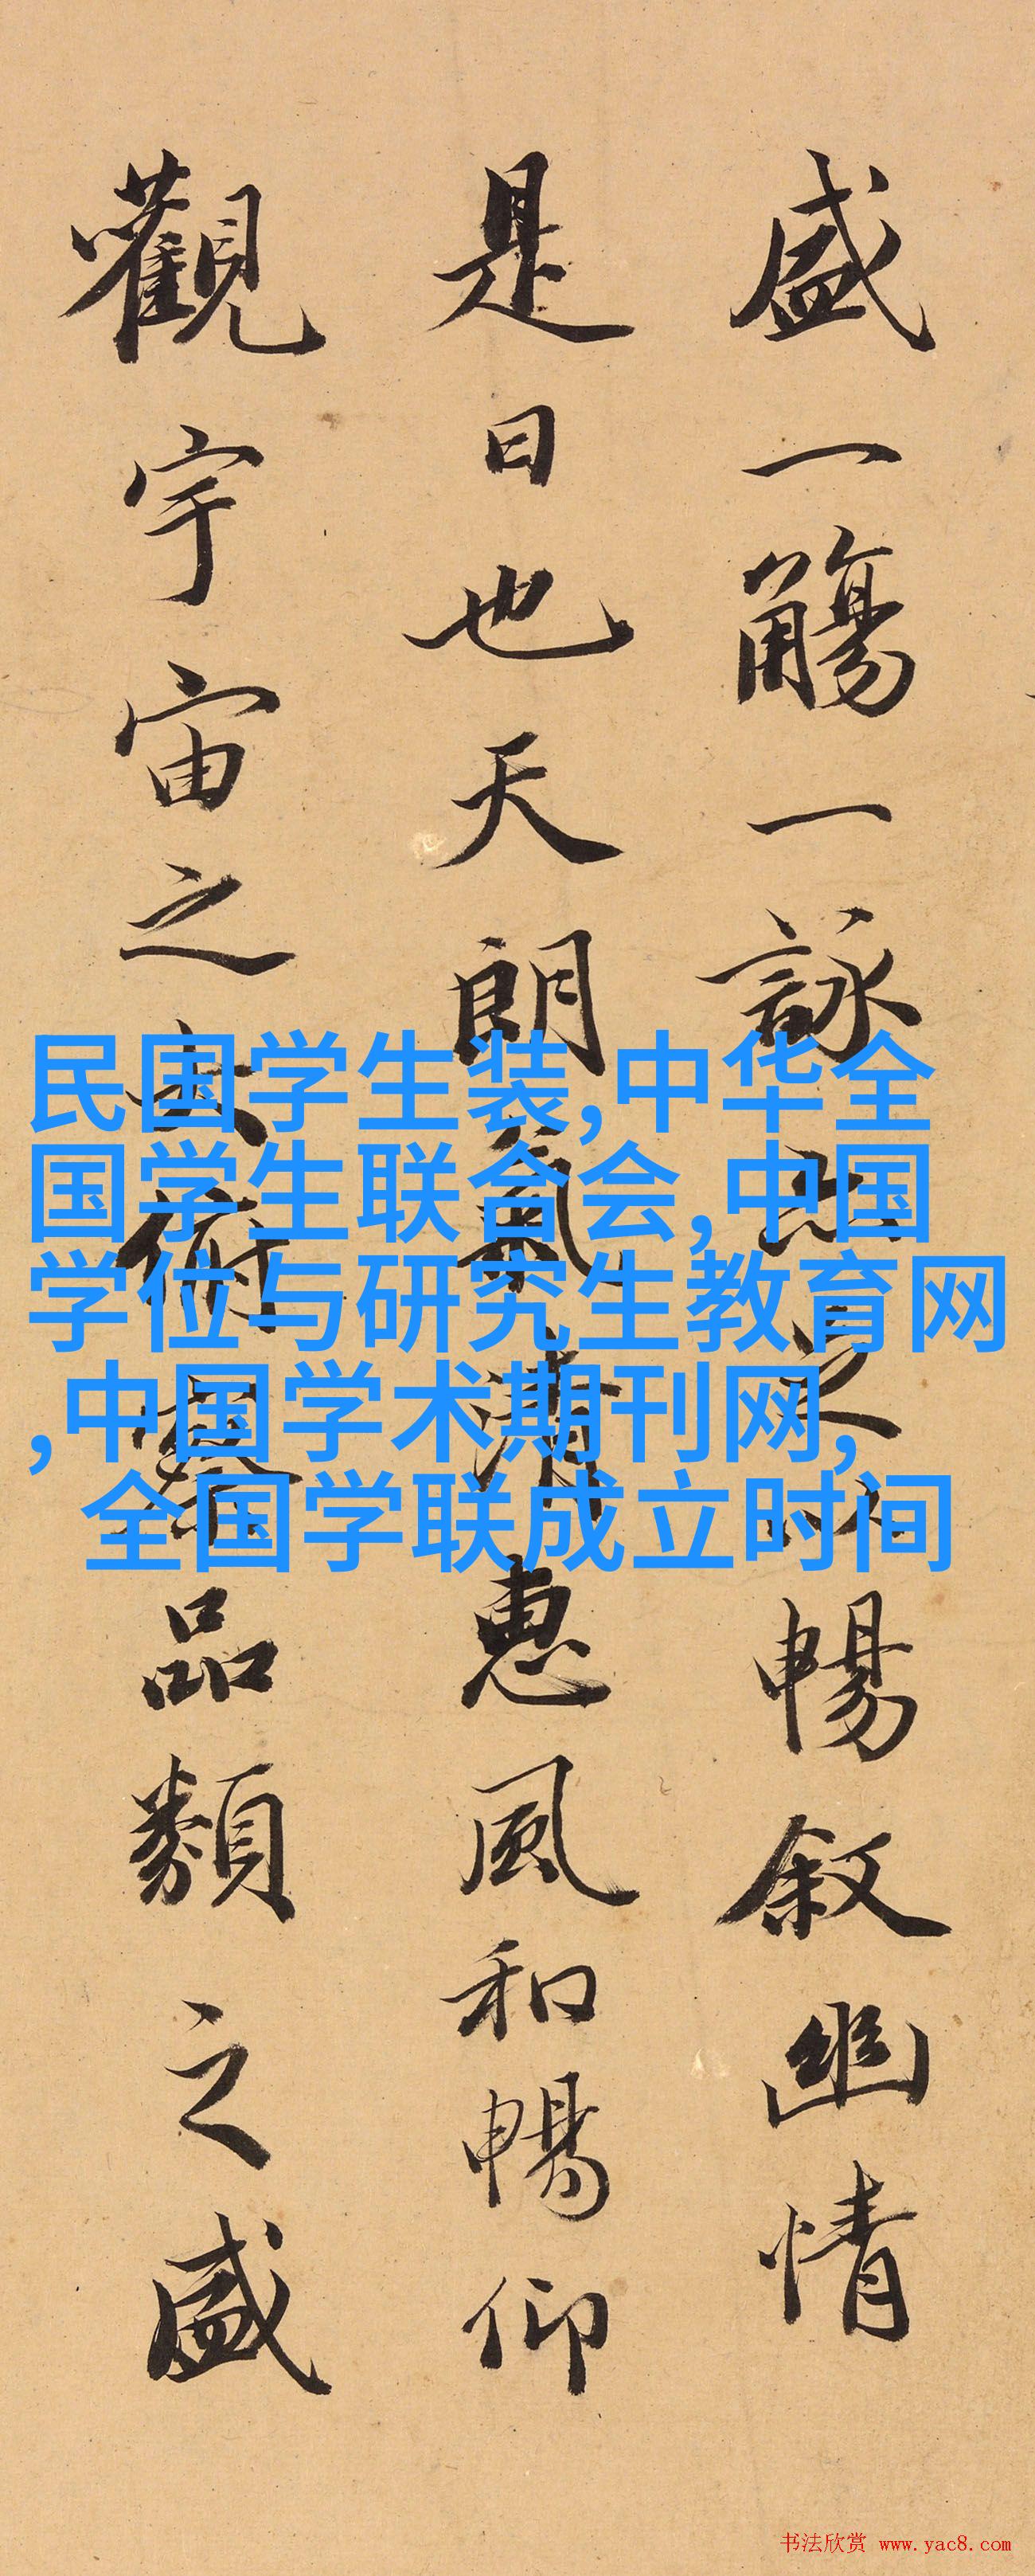 盛一觴一詠亦足以暢叙幽情
是日也天朗氣清惠風和暢仰
觀宇宙之大俯察品類之盛
民国学生装,中华全
国学生联合会,中国
学位与研究生教育网
,中国学术期刊网,
全国学联成立时间
书法欣赏 www.yac8.com